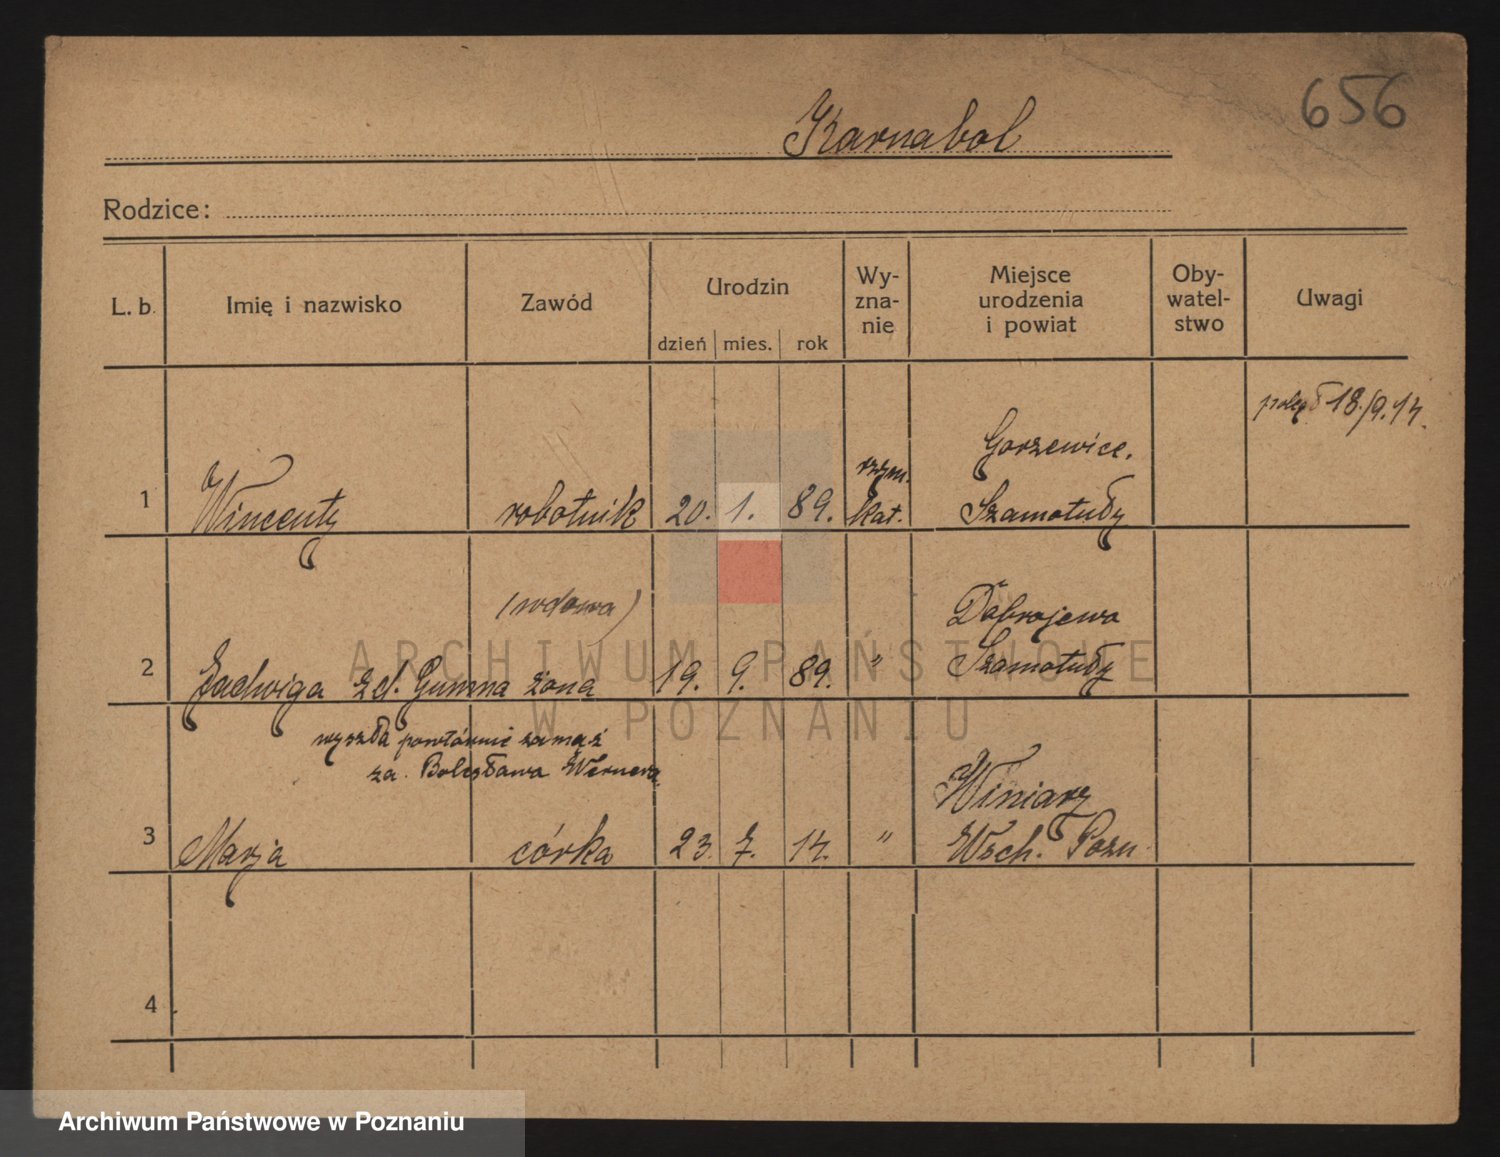 656
Karnabal
Rodzice:
L. b.
Imię i nazwisko
Zawód
Urodzin
dzień mies. rok
Wy-
zna-
nie
Miejsce
urodzenia
i powiat
Oby-
watel-
stwo
Uwagi
poległ 18./9.14.
1 Wincenty robotnik 20. 1. 89. rzym. kat. Gorzewice. Szamotuły
(wdowa)
2 Jadwiga zd. Gumna żona 19. 9. 89. " Dobrojewo Szamotuły
wyszła powtórnie zamąż
za Bolesława Wernera
3 Marja córka 23. 7. 14. " Winiary Wsch. Pozn.
4
ARCHIWUM PAŃSTWOWE
W POZNANIU
Archiwum Państwowe w Poznaniu